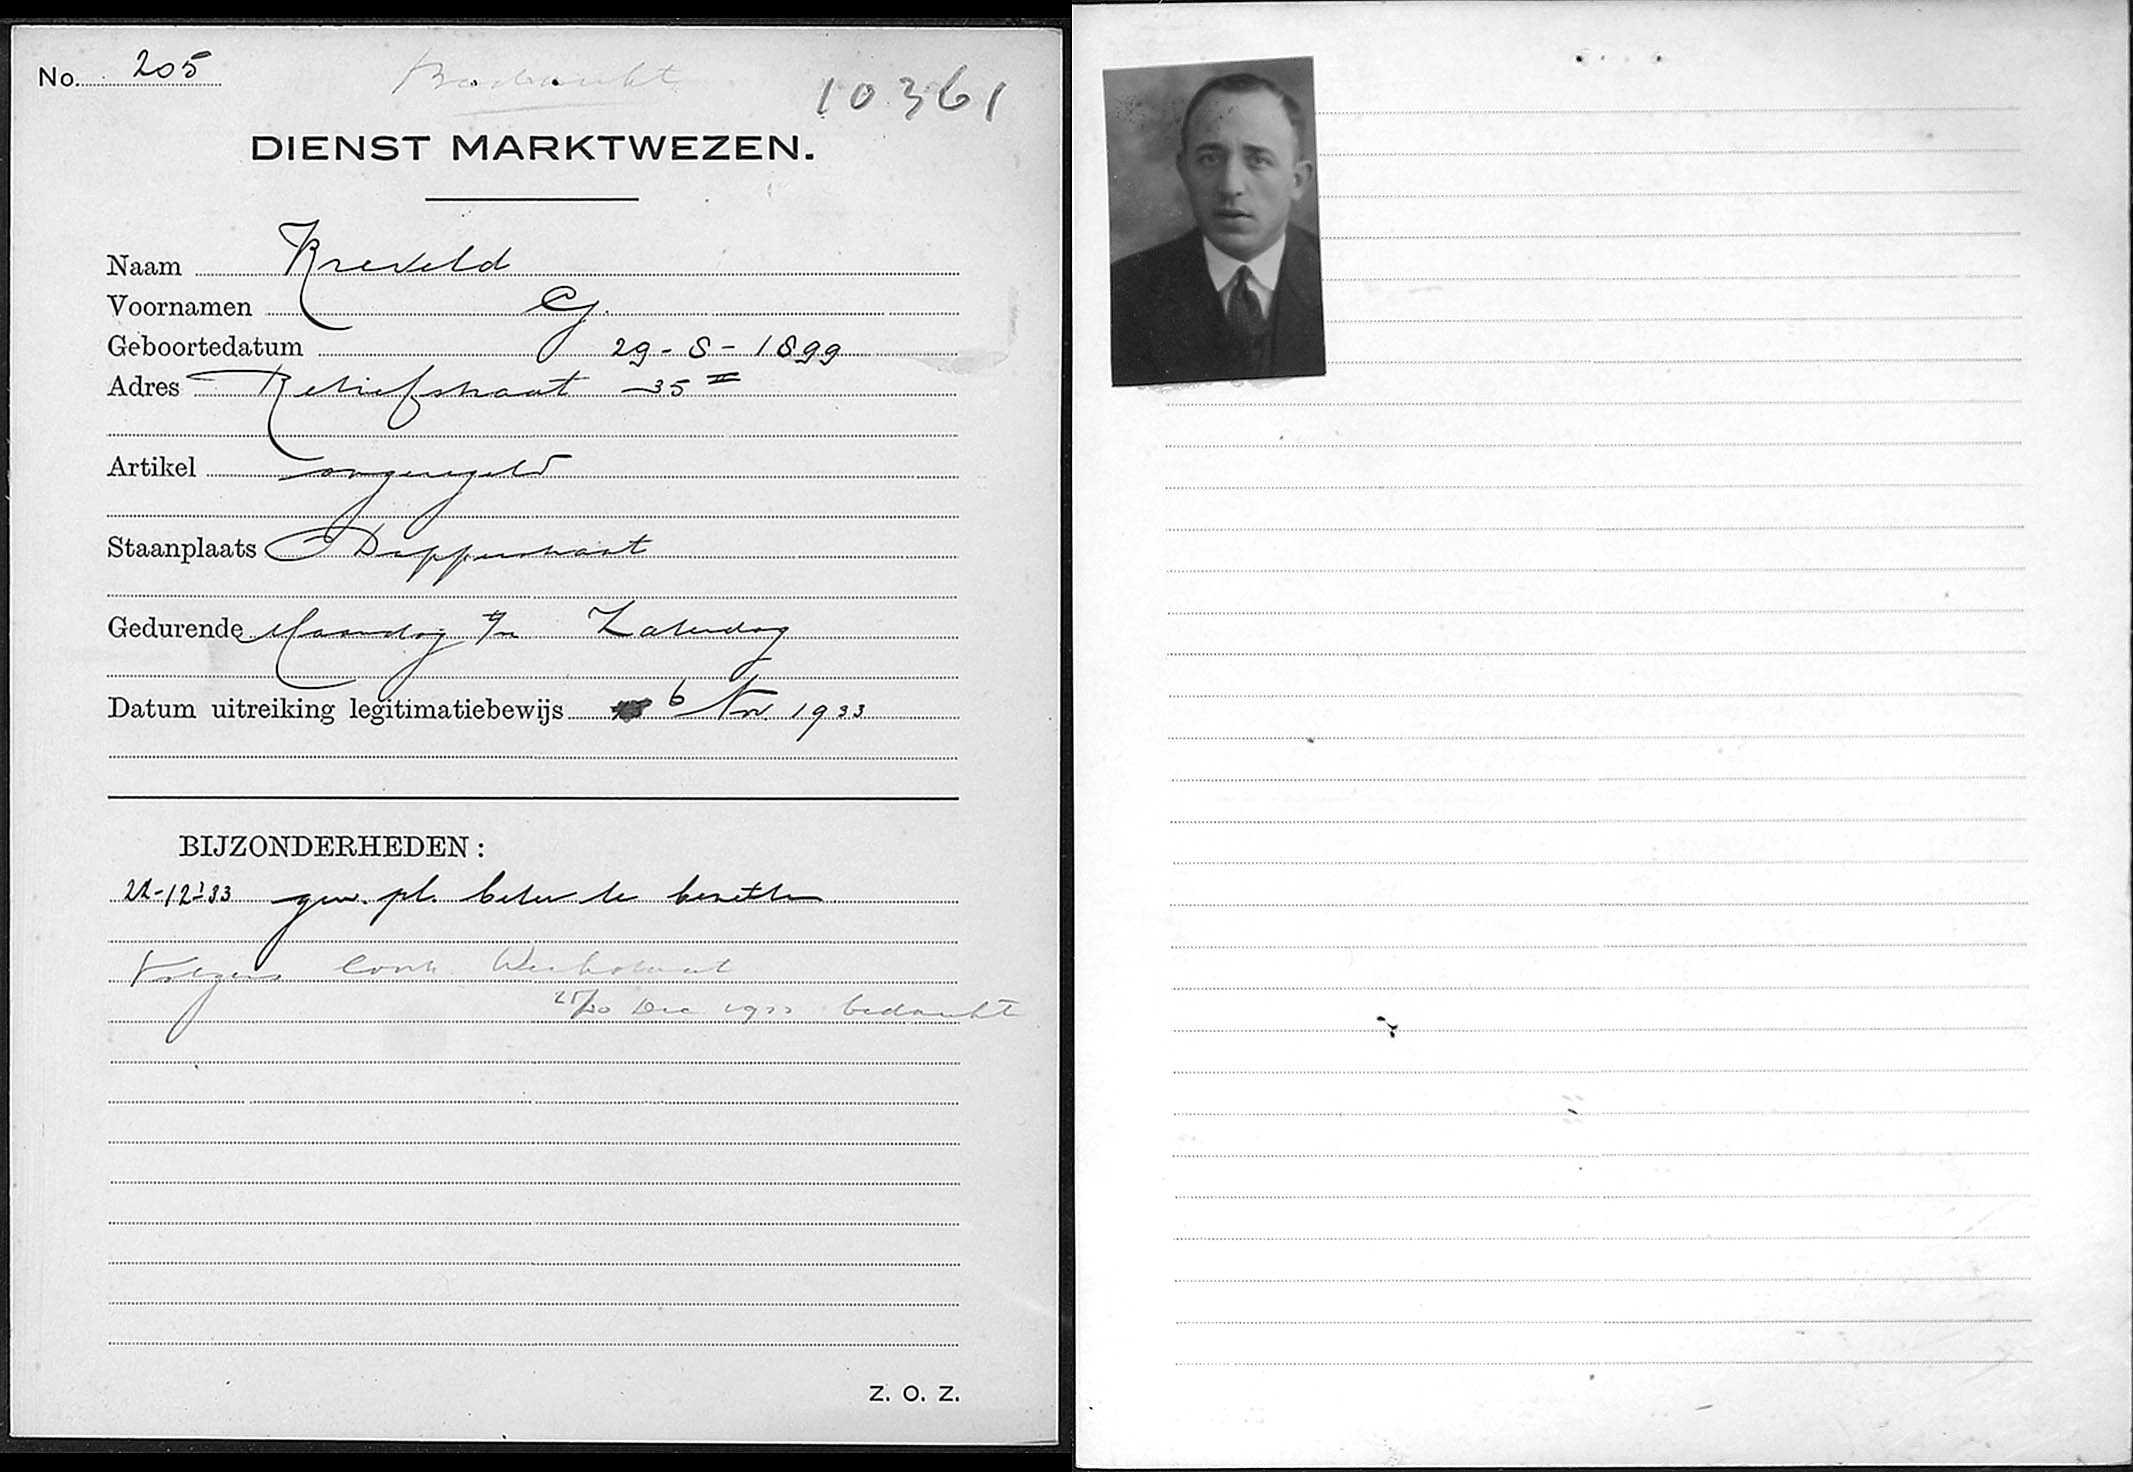 No. 205
Bedankt
10361
DIENST MARKTWEZEN.
Naam Kreveld
Voornamen
Geboortedatum 29-8-1899
Adres Retiefstraat 35 II
Artikel ongeregeld
Staanplaats Dapperstraat
Gedurende Maandag t/m Zaterdag
Datum uitreiking legitimatiebewijs 6 Nov. 1933
BIJZONDERHEDEN:
-12-'33 gew. pl. beter te bezetten
Volgens
Dec 1933 bedankt
Z. O. Z.